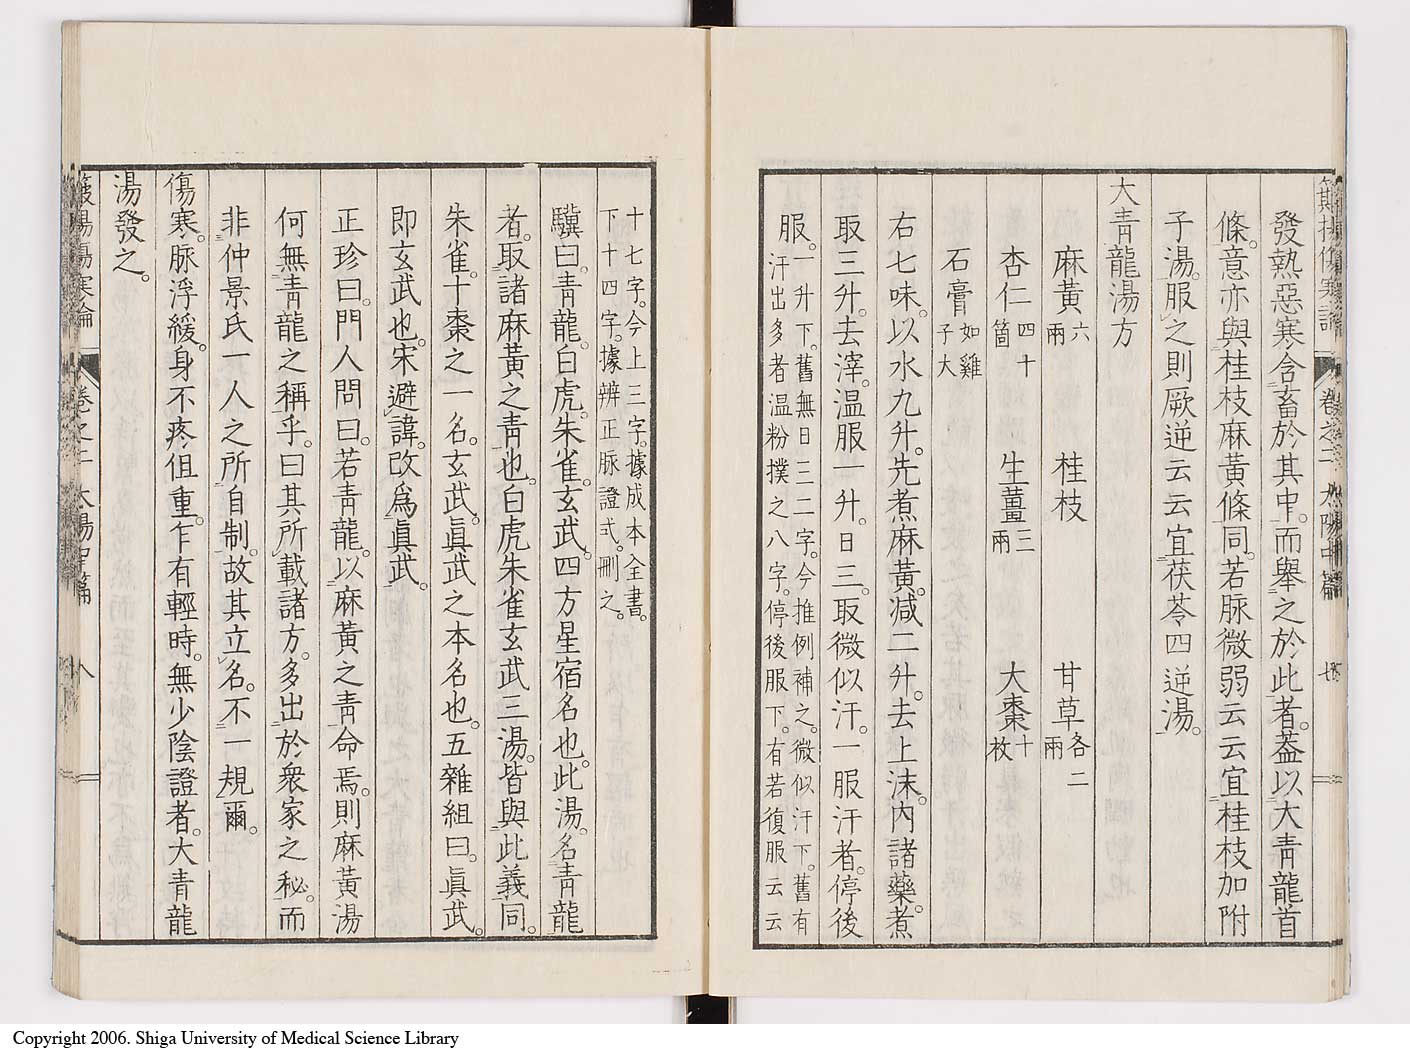 發熱惡寒含畜於其中。而舉之於此者。葢以大青龍首
條。意亦與桂枝麻黃條同。若脉微弱云云宜桂枝加附
子湯。服之則厥逆云云宜茯苓四逆湯。
大青龍湯方
麻黃六兩 桂枝 甘草各二兩
杏仁四十箇 生薑三兩 大棗十枚
石膏如雞子大
右七味。以水九升。先煮麻黃。減二升。去上沫。內諸藥。煮
取三升。去滓。溫服一升。日三。取微似汗。一服汗者。停後
服。一升下。舊無日三二字。今推例補之。微似汗下。舊有
汗出多者溫粉撲之八字。停後服下。有若復服云云
十七字。今上三字。據成本全書。
下十四字。據辨正脉證式。刪之。
驥曰。青龍。白虎。朱雀。玄武。四方星宿名也。此湯。名青龍
者。取諸麻黃之青也。白虎朱雀玄武三湯。皆與此義同。
朱雀。十棗之一名。玄武。眞武之本名也。五雜組曰。眞武。
即玄武也。宋避諱。改爲眞武。
正珍曰。門人問曰。若青龍。以麻黃之青命焉。則麻黃湯
何無青龍之稱乎。曰其所載諸方。多出於衆家之秘。而
非仲景氏一人之所自制。故其立名。不一規爾。
傷寒。脉浮緩。身不疼但重。乍有輕時。無少陰證者。大青龍
湯發之。
卷之二 太陽中篇 八